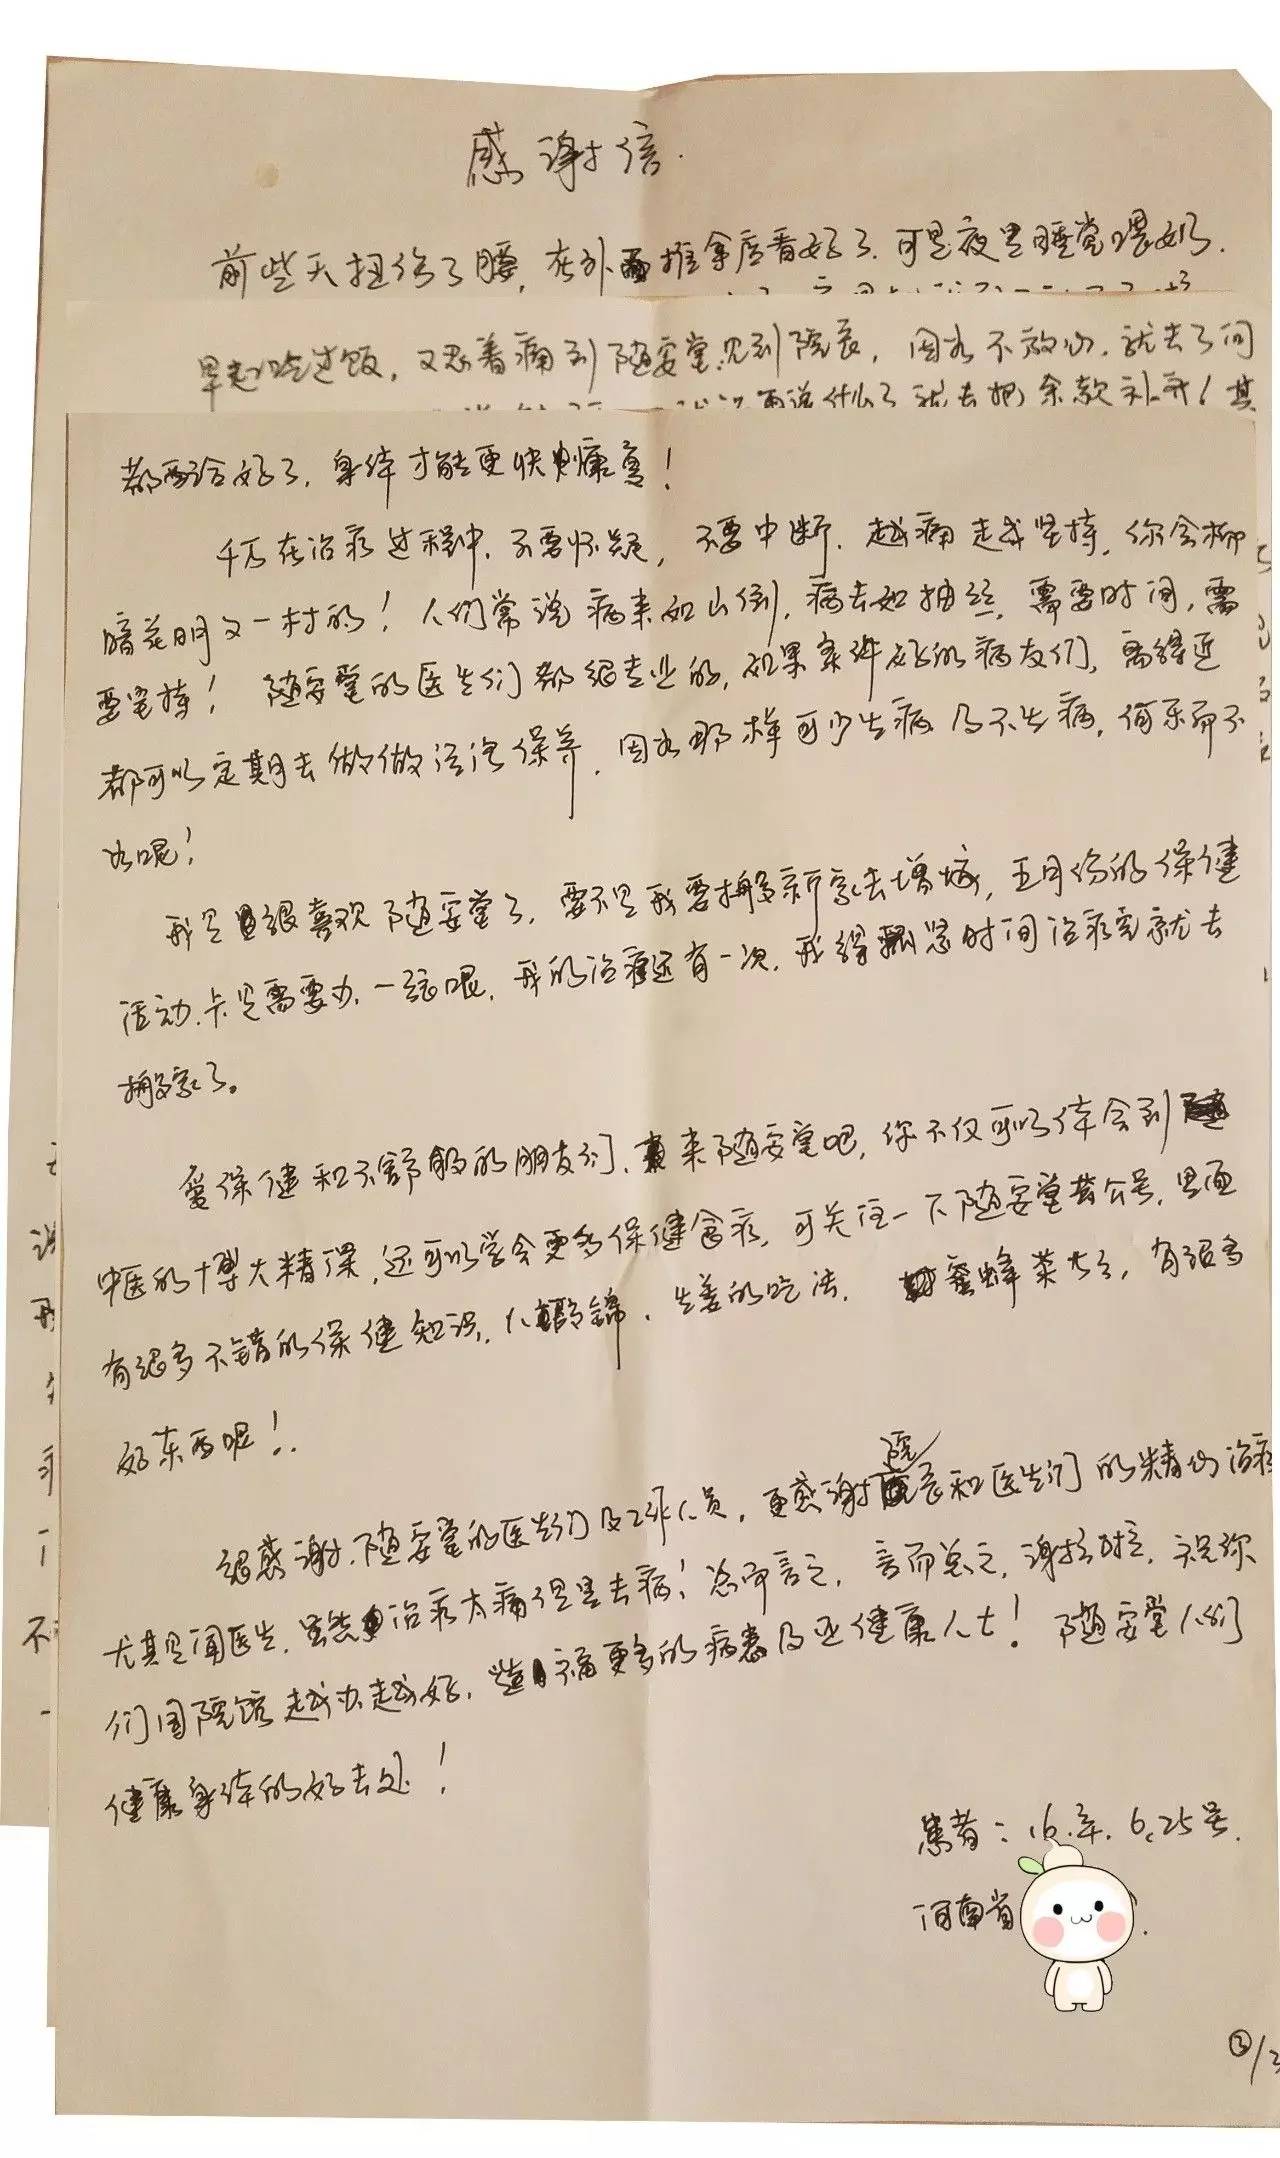 感谢信.
前些天扭伤了腰, 在外面推拿店看好了. 可是夜里睡觉喂奶.
早起吃过饭, 又忍着痛到随安堂见到院长, 因为不放心, 就去了问
再说什么了就去把余款补齐! 其
都配合好了, 身体才能更快康复!
千万在治疗过程中, 不要怀疑, 不要中断. 越痛越坚持, 你会柳
暗花明又一村的! 人们常说病来如山倒, 病去如抽丝, 需要时间, 需
要坚持! 随安堂的医生们都很专业的, 如果条件好的病友们, 离得近
都可以定期去做做治疗保养. 因为那样可少生病及不生病, 何乐而不
为呢!
我是很喜欢随安堂了, 要不是我要搬新家去增城, 五月份的保健
活动卡是需要办一张呢, 我的治疗还有一次, 我得抓紧时间治疗完就去
搬家了。
爱保健和不舒服的朋友们, 来随安堂吧, 你不仅可以体会到
中医的博大精深, 还可以学会更多保健食疗, 可关注一下随安堂公号, 里面
有很多不错的保健知识, 八段锦, 生姜的吃法, 蜜蜂 有很多
好东西呢!
很感谢随安堂的医生们及工作人员, 更感谢院长和医生们的精心治疗
尤其是闻医生, 虽然治疗太痛但是去病! 总而言之, 言而总之, 谢谢, 祝你
们国医馆越办越好, 造福更多的病患及亚健康人士! 随安堂人们
健康身体的好去处!
患者: 16.年. 6.25号.
河南省
③/3